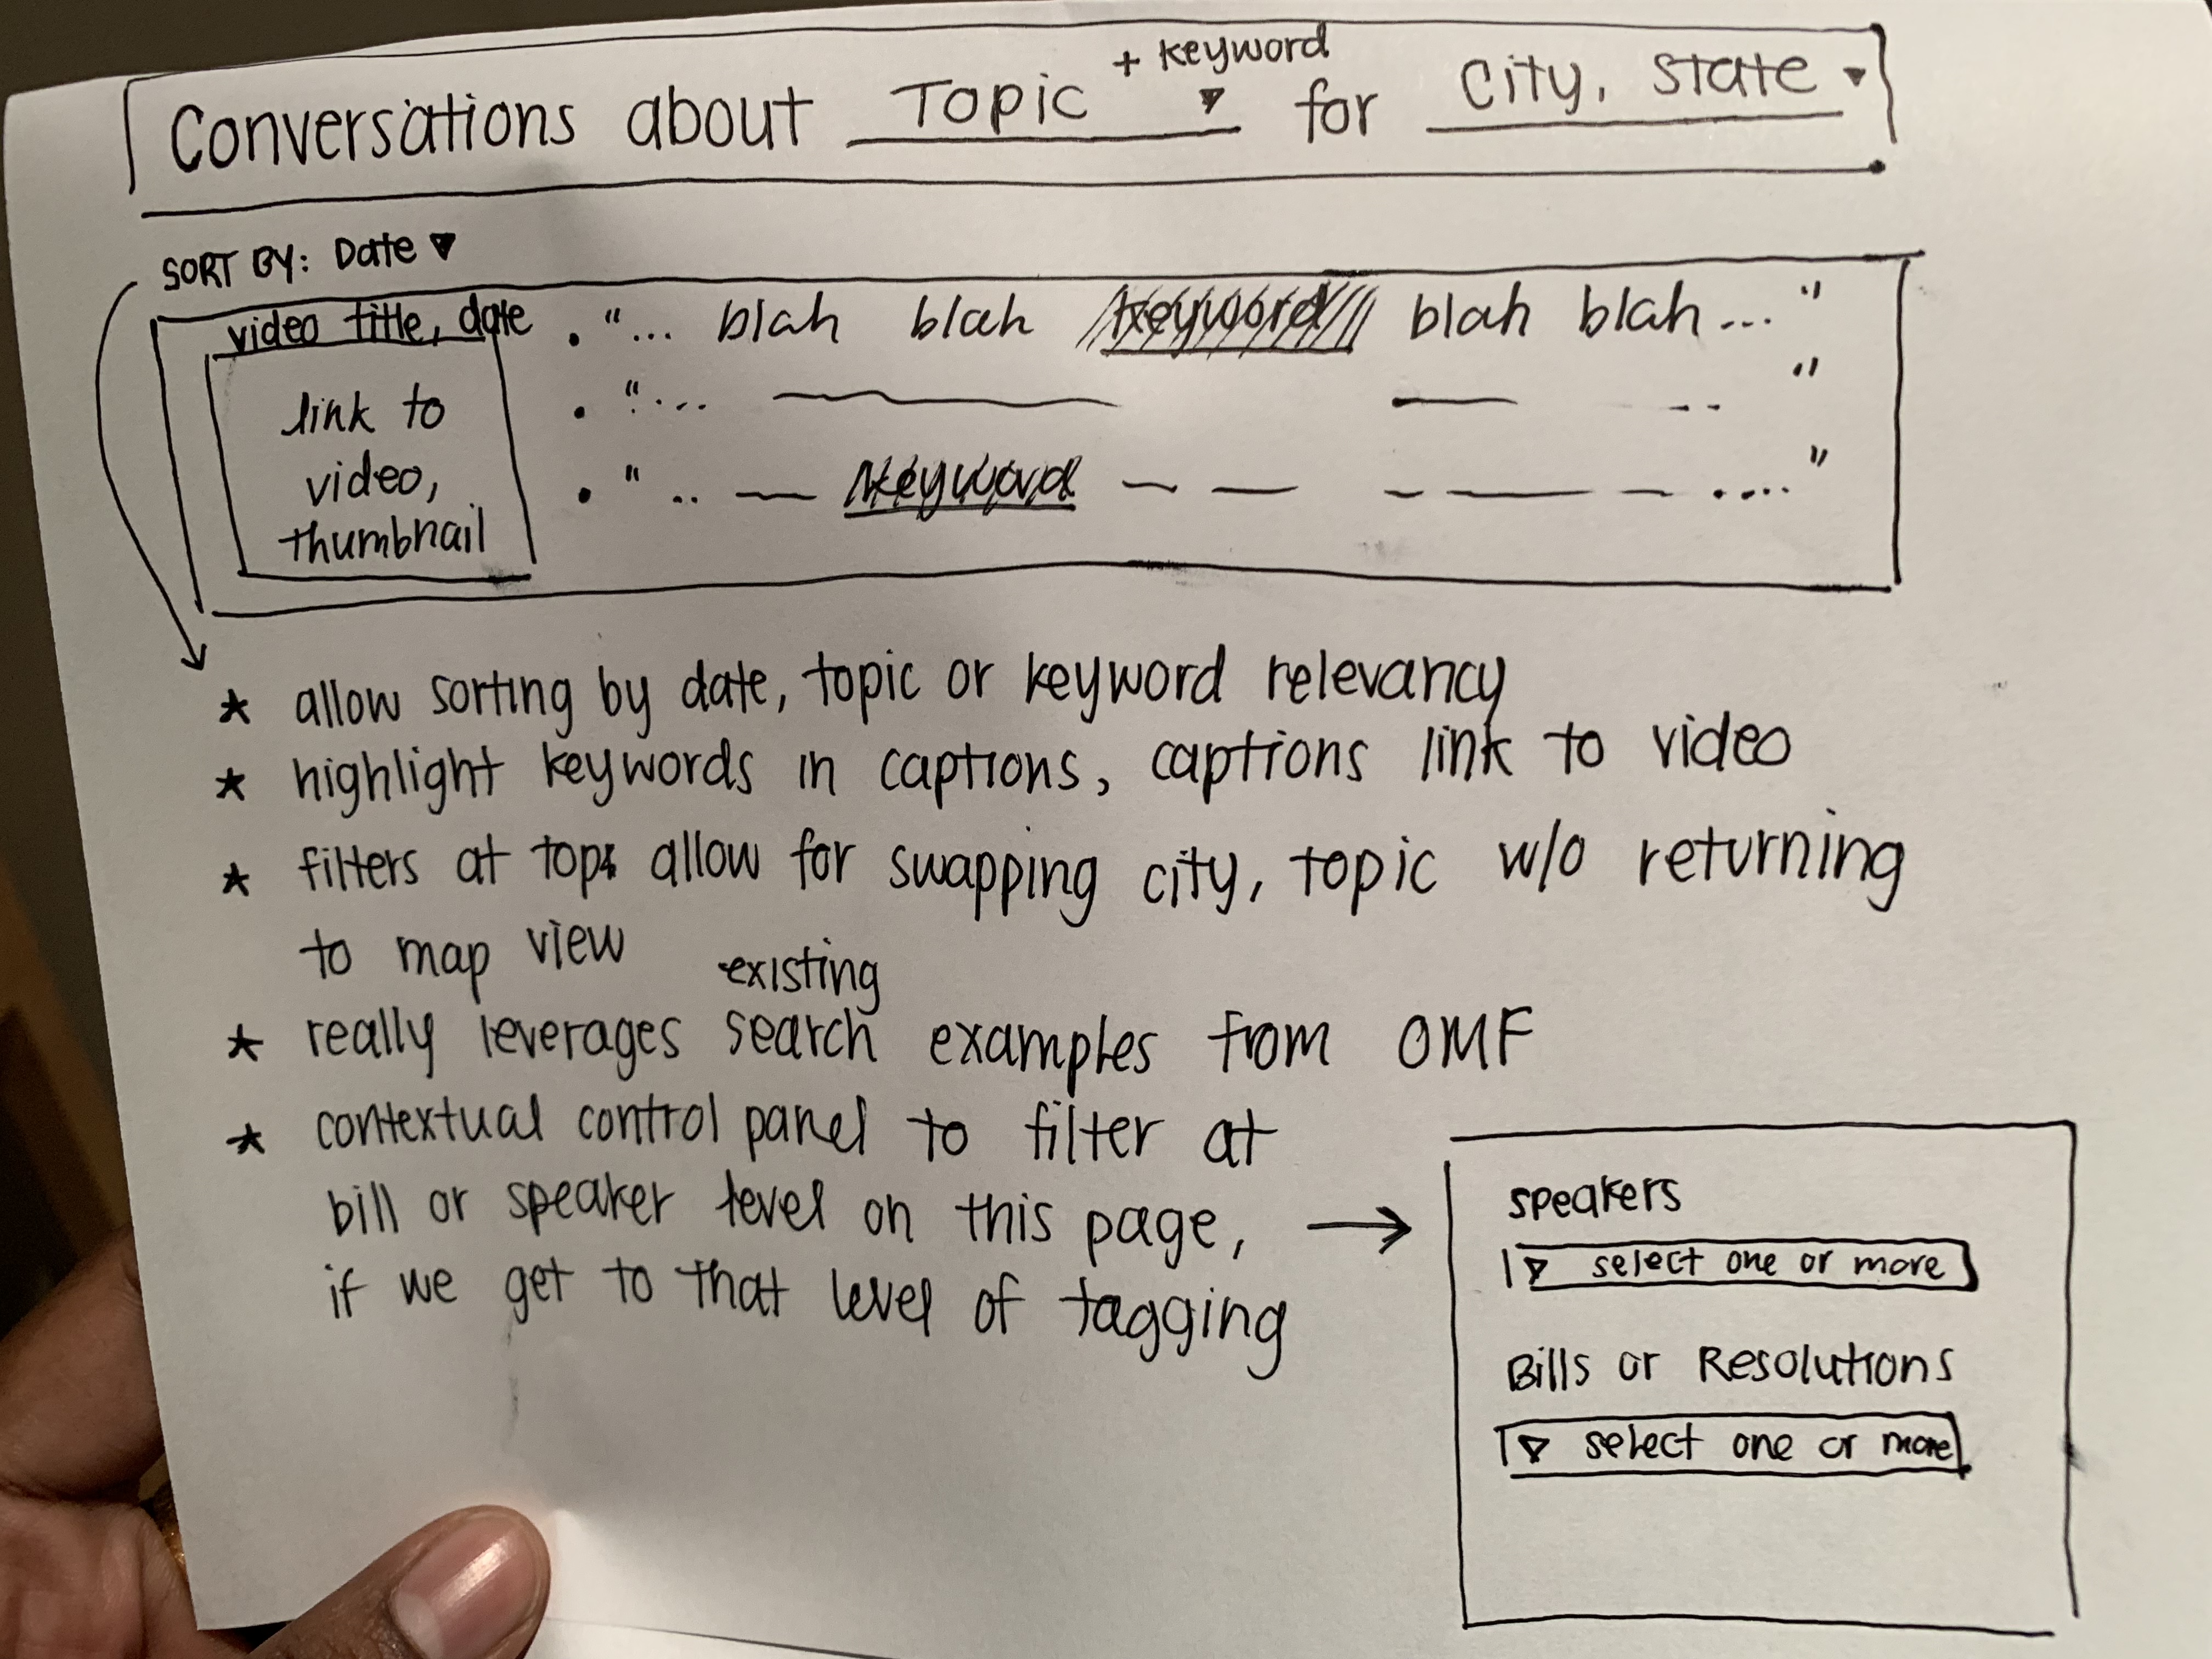 + keyword
Conversations about Topic ▾ for City, State ▾
SORT BY: Date ▾
video title, date
link to
video,
thumbnail
• "... blah blah keyword blah blah ..."
• "... "
• " .. keyword .... "
* allow sorting by date, topic or keyword relevancy
* highlight keywords in captions, captions link to video
* filters at top allow for swapping city, topic w/o returning
to map view
existing
* really leverages search examples from OMF
* contextual control panel to filter at
bill or speaker level on this page, →
if we get to that level of tagging
speakers
▾ select one or more
Bills or Resolutions
▾ select one or more